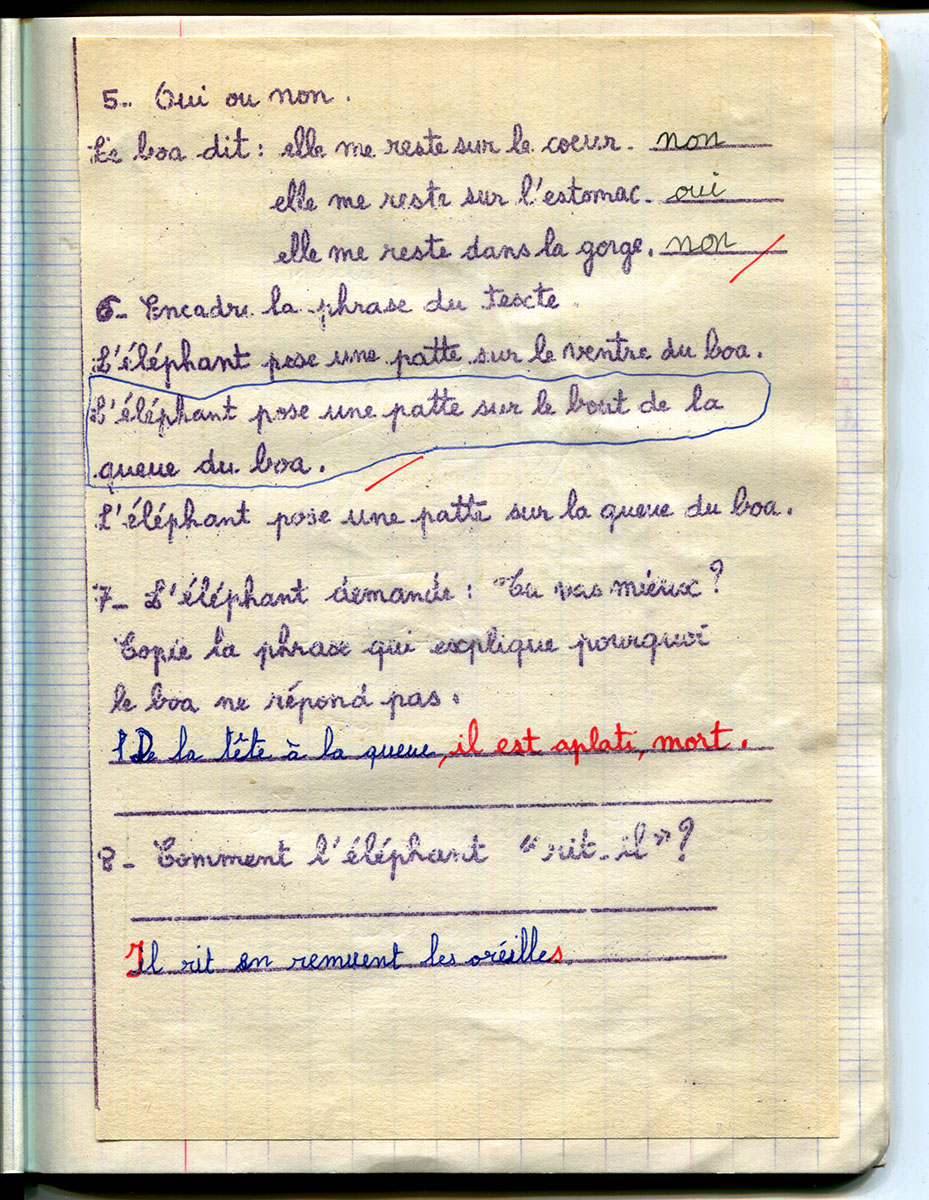 5.. Oui ou non.
Le boa dit : elle me reste sur le coeur. non
elle me reste sur l'estomac. oui
elle me reste dans la gorge. non
6- Encadre la phrase du texte
L'éléphant pose une patte sur le ventre du boa.
L'éléphant pose une patte sur le bout de la
queue du boa.
L'éléphant pose une patte sur la queue du boa.
7- L'éléphant demande : Tu vas mieux ?
Copie la phrase qui explique pourquoi
le boa ne répond pas.
De la tête à la queue, il est aplati, mort.
8- Comment l'éléphant "rit-il" ?
Il rit en remuent les oréilles.